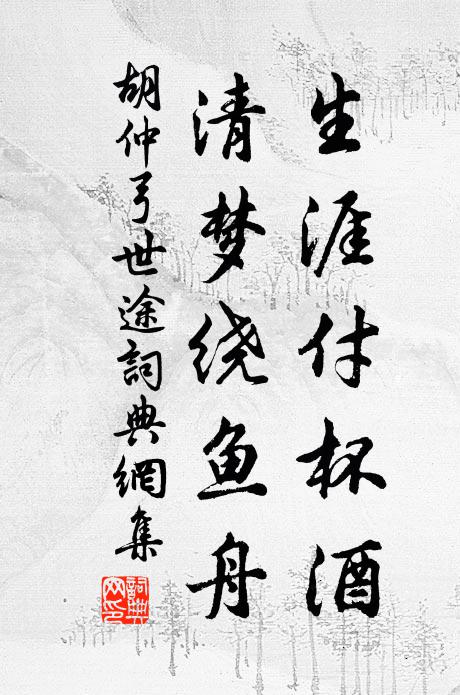 生涯付杯酒
清梦绕鱼舟
胡仲弓世途詞典網集
詞典網印